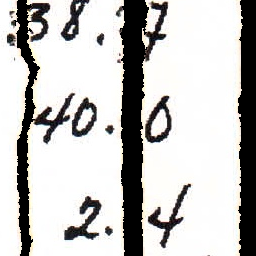 38.
40. 0
2. 4